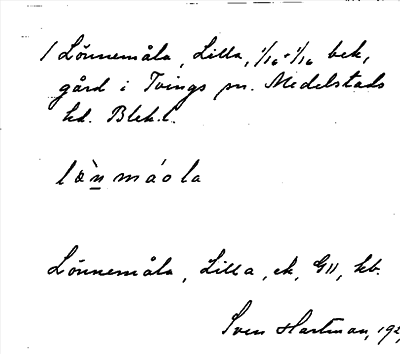 / Lönnemåla, Lilla, 1/16 + 1/16 bek,
gård i Tvings sn. Medelstads
hd. Blek.l.
læ̀n máola
Lönnemåla, Lilla, ek, GII, kb.
Sven Hartman, 192